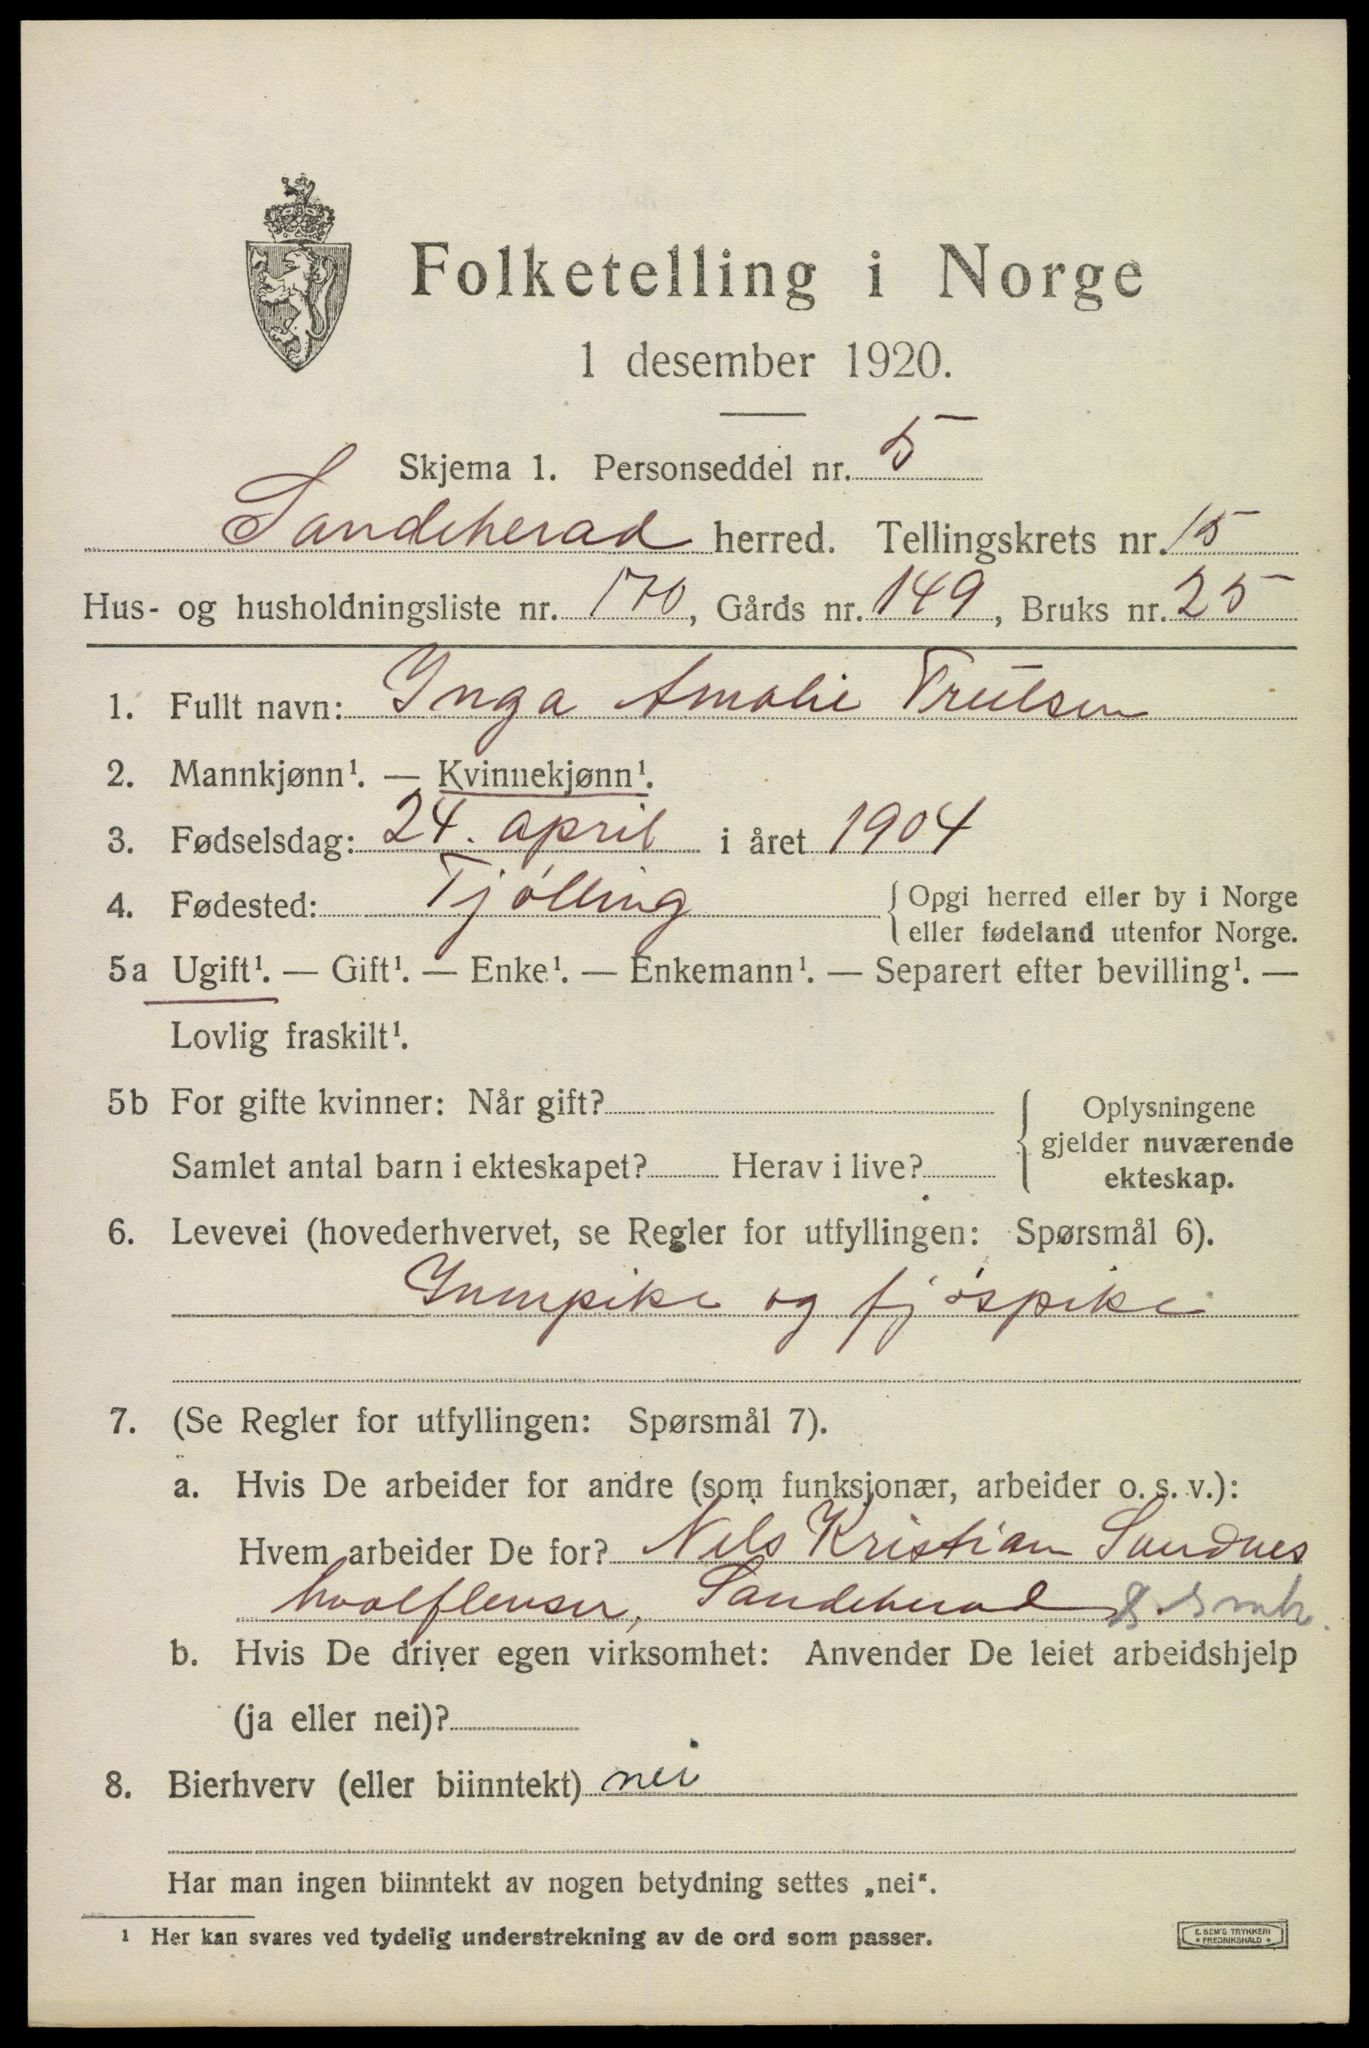 Folketelling i Norge
1 desember 1920.
Skjema 1. Personseddel nr. 5
Sandeherad herred. Tellingskrets nr. 15
Hus- og husholdningsliste nr. 170, Gårds nr. 149, Bruks nr. 25
1. Fullt navn: Inga Amalie Trulsen
2. Mannkjønn¹. — Kvinnekjønn¹.
3. Fødselsdag: 24. april i året 1904
4. Fødested: Tjølling { Opgi herred eller by i Norge
eller fødeland utenfor Norge.
5a Ugift¹. — Gift¹. — Enke¹. — Enkemann¹. — Separert efter bevilling¹. —
Lovlig fraskilt¹.
5b For gifte kvinner: Når gift? { Oplysningene
gjelder nuværende
Samlet antal barn i ekteskapet? Herav i live?
ekteskap.
6. Levevei (hovederhvervet, se Regler for utfyllingen: Spørsmål 6).
Innepike og fjøspike
7. (Se Regler for utfyllingen: Spørsmål 7).
a. Hvis De arbeider for andre (som funksjonær, arbeider o. s. v.):
Hvem arbeider De for? Nils Kristian Sandnes
hvalflenser, Sandeherad
b. Hvis De driver egen virksomhet: Anvender De leiet arbeidshjelp
(ja eller nei)?
8. Bierhverv (eller biinntekt) nei
Har man ingen biinntekt av nogen betydning settes „nei“.
¹ Her kan svares ved tydelig understrekning av de ord som passer.
E. SEM'S TRYKKERI
* FREDRIKSHALD *